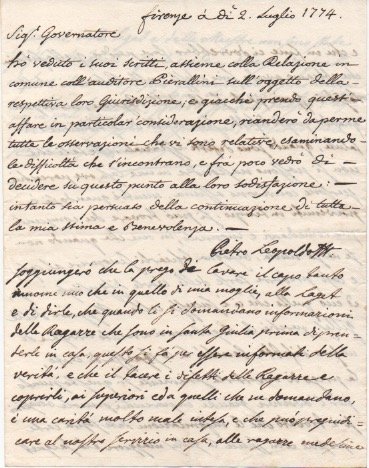 Firenze à dì 2. Luglio 1774.
Sig.r Governatore
Hò veduto i suoi scritti, assieme colla Relazione in
comune coll'auditore Pierallini sull'oggetto della
respettiva loro Giurisdizione, e giacchè prendo quest'
affare in particolar considerazione, riandero da per me
tutte le osservazioni che vi sono relative, esaminando
le difficoltà che s'incontrano, e fra poco vedrò di
decidere su questo punto alla loro sodisfazione: —
intanto stia persuaso della continuazione di tutta
la mia stima e Benevolenza. —
Pietro Leopoldo
Soggiungerò che la prego di lavare il capo tanto
in nome mio che in quello di mia moglie, alla
e di dirle, che quando le si domandano informazioni
delle Ragazze che sono in Santa Giulia prima di pren-
derle in casa, questo si fà per essere informati della
verità, e che il tacere i difetti delle Ragazze e
coprirli, ai superiori ed a quelli che ne domandano,
è una carità molto male intesa, e che può pregiudi-
care al nostro servizio in casa, alle ragazze medesime